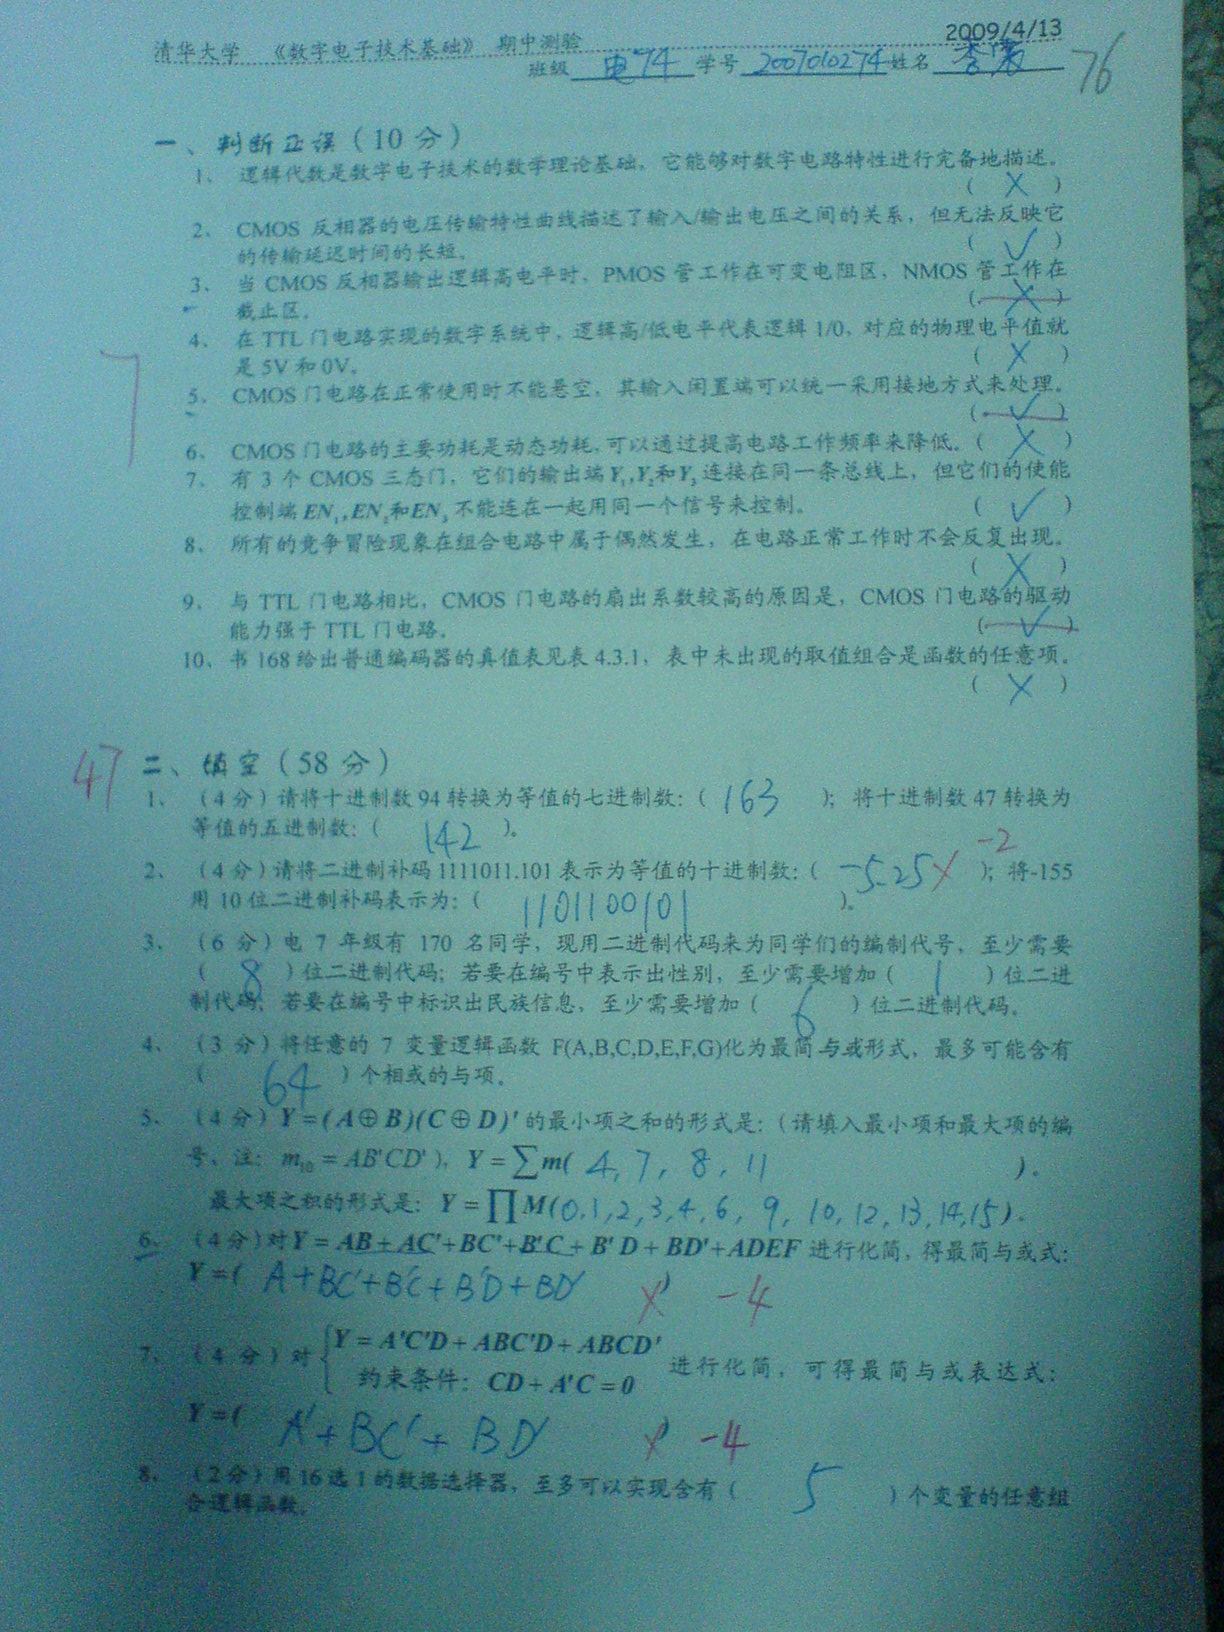 2009/4/13
清华大学 《数字电子技术基础》 期中测验
班级 电74 学号 2007010274 姓名
76
一、判断正误（10 分）
1、 逻辑代数是数字电子技术的数学理论基础，它能够对数字电路特性进行完备地描述。
（ × ）
2、 CMOS 反相器的电压传输特性曲线描述了输入/输出电压之间的关系，但无法反映它
的传输延迟时间的长短。 （ √ ）
3、 当 CMOS 反相器输出逻辑高电平时，PMOS 管工作在可变电阻区，NMOS 管工作在
截止区。 （ × ）
4、 在 TTL 门电路实现的数字系统中，逻辑高/低电平代表逻辑 1/0，对应的物理电平值就
是 5V 和 0V。 （ × ）
7
5、 CMOS 门电路在正常使用时不能悬空，其输入闲置端可以统一采用接地方式来处理。
（ √ ）
6、 CMOS 门电路的主要功耗是动态功耗，可以通过提高电路工作频率来降低。（ × ）
7、 有 3 个 CMOS 三态门，它们的输出端 Y₁,Y₂和Y₃ 连接在同一条总线上，但它们的使能
控制端 EN₁,EN₂和EN₃ 不能连在一起用同一个信号来控制。 （ √ ）
8、 所有的竞争冒险现象在组合电路中属于偶然发生，在电路正常工作时不会反复出现。
（ × ）
9、 与 TTL 门电路相比，CMOS 门电路的扇出系数较高的原因是，CMOS 门电路的驱动
能力强于 TTL 门电路。 （ √ ）
10、书 168 给出普通编码器的真值表见表 4.3.1，表中未出现的取值组合是函数的任意项。
（ × ）
47
二、填空（58 分）
1、 （4 分）请将十进制数 94 转换为等值的七进制数：（ 163 ）；将十进制数 47 转换为
等值的五进制数：（ 142 ）。
2、 （4 分）请将二进制补码 1111011.101 表示为等值的十进制数：（ -5.25 × -2 ）；将-155
用 10 位二进制补码表示为：（ 1101100101 ）。
3、 （6 分）电 7 年级有 170 名同学，现用二进制代码来为同学们的编制代号，至少需要
（ 8 ）位二进制代码；若要在编号中表示出性别，至少需要增加（ 1 ）位二进
制代码；若要在编号中标识出民族信息，至少需要增加（ 6 ）位二进制代码。
4、 （3 分）将任意的 7 变量逻辑函数 F(A,B,C,D,E,F,G)化为最简与或形式，最多可能含有
（ 64 ）个相或的与项。
5、 （4 分）Y = (A⊕B)(C⊕D)' 的最小项之和的形式是：（请填入最小项和最大项的编
号，注：m₁₀ = AB'CD'），Y = ∑m( 4, 7, 8, 11 )。
最大项之积的形式是：Y = ∏M(0,1,2,3,4,6, 9, 10, 12, 13, 14,15)。
6、 （4 分）对 Y = AB + AC'+BC'+B'C + B'D + BD'+ADEF 进行化简，得最简与或式：
Y =( A+BC'+B'C+B'D+BD' ) × -4
7、 （4 分）对 Y = A'C'D + ABC'D + ABCD'
约束条件：CD + A'C = 0 进行化简，可得最简与或表达式：
Y =( A'+BC'+BD' ) × -4
8、 （2 分）用 16 选 1 的数据选择器，至多可以实现含有（ 5 ）个变量的任意组
合逻辑函数。